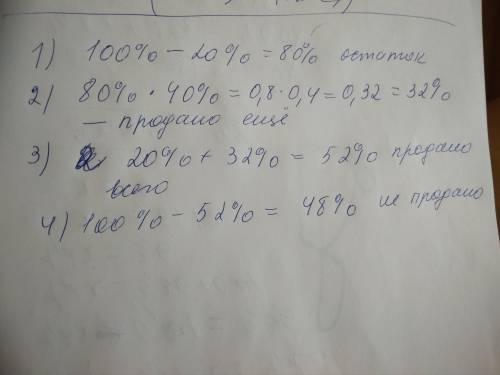 1) 100% – 20% = 80% остаток
2) 80% · 40% = 0,8 · 0,4 = 0,32 = 32%
— продано ещё
3) 20% + 32% = 52% продано
всего
4) 100% – 52% = 48% не продано